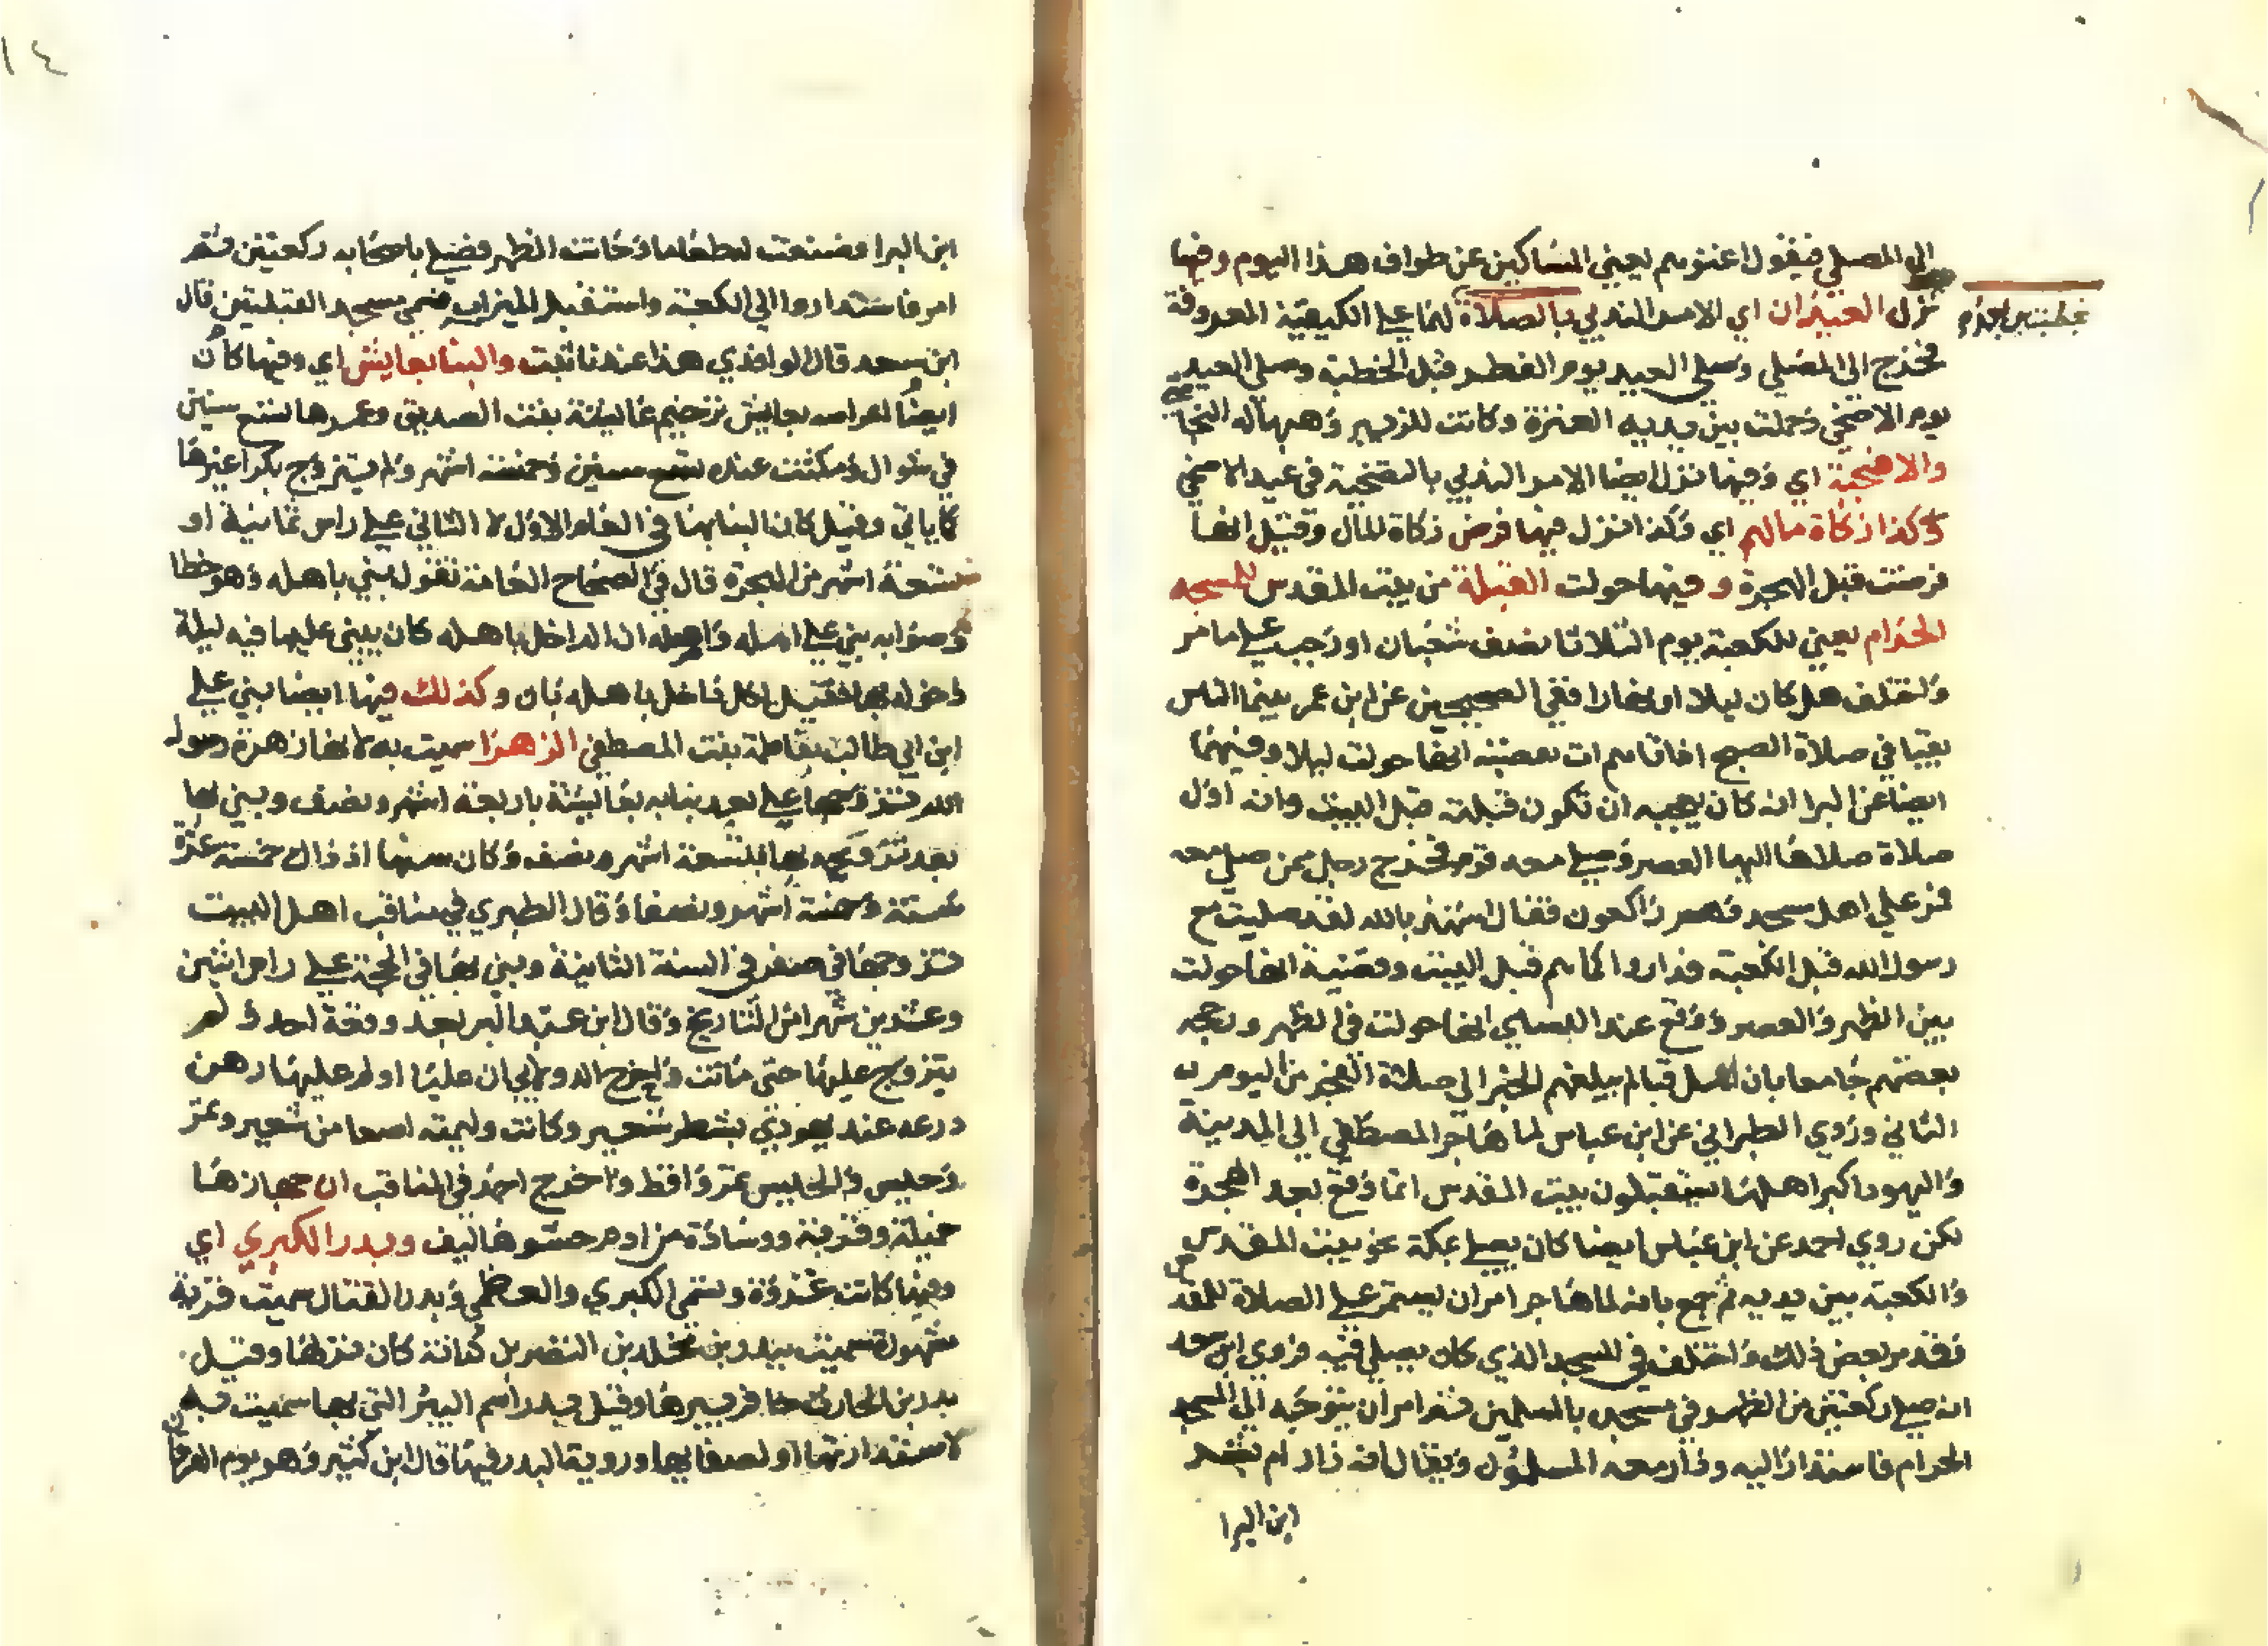 الى المصلي فيقول اغنوهم يعني المساكين عن طواف هذا اليوم وفيها
نزل العيدان اي الامر الندبي بالصلاة لهما على الكيفية المعروفة
فخرج الى المصلي وصلى العيد يوم الفطر قبل الخطبة وصلى العيد
يوم الاضحي وحملت بين يديه العنزة وكانت للزبير وهبها له النجاشي
والاضحية اي وفيها نزل ايضا الامر الندبي بالتضحية في عيد الاضحي
وكذا زكاة مالهم اي وكذا نزل فيها فرض زكاة المال وقيل انها
فرضت قبل الهجرة وفيها حولت القبلة من بيت المقدس للمسجد
الحرام يعني للكعبة يوم الثلاثا نصف شعبان او رجب على ما مر
واختلف هل كان ليلا او نهارا ففي الصحيحين عن ابن عمر بينما الناس
بقبا في صلاة الصبح اذ اتاهم ات قضيته انها حولت ليلا وفيهما
ايضا عن البرا انه كان يعجبه ان تكون قبلته قبل البيت وانه اول
صلاة صلاها اليها العصر وصلى معه قوم فخرج رجل ممن صلى معه
فمر على اهل مسجد وهم راكعون فقال اشهد بالله لقد صليت مع
رسول الله قبل الكعبة فداروا كما هم قبل البيت وقضية انها حولت
بين الظهر والعصر ووقع عند النسائي انها حولت في الظهر و
بعضهم جامعا بان اهل قبا لم يبلغهم الخبر الى صلاة الفجر من اليوم
الثاني وروي الطبراني عن ابن عباس لما هاجر المصطفي الى المدينة
واليهود اكبر اهلها يستقبلون بيت المقدس انما وقع بعد الهجرة
لكن روي احمد عن ابن عباس ايضا كان يصلي بمكة نحو بيت المقدس
والكعبة بين يديه ثم جمع بانه لما هاجر امر ان يستمر على الصلاة للمقدس
فقد مر بعض ذلك واختلف في المسجد الذي كان يصلي فيه فروي ابن سعد
انه صلى ركعتين من الظهر في مسجده بالمسلمين ثم امر ان يتوجه الى المسجد
الحرام فاستدار اليه ودار معه المسلمون ويقال انه زار ام بشر
ابن البرا
ابن البرا فصنعت له طعاما وحانت الظهر فصلى باصحابه ركعتين ثم
امر فاستداروا الى الكعبة واستقبل الميزاب فسمي مسجد القبلتين قال
ابن سعد قال الواقدي هذا عندنا اثبت والبنا بعايش اي وفيها كان
ايضا اعراسه بعايش ترخيم عائشة بنت الصديق وعمرها تسع سنين
في شوال ومكثت عنده تسع سنين وخمسة اشهر ولم يتزوج بكرا غيرها
كما ياتي وقيل كان البنا بها في العام الاول لا الثاني على راس ثمانية او
تسعة اشهر من الهجرة قال في الصحاح العامة تقول بني باهله وهو خطا
وصوابه بني على اهله واصله ان الداخل باهله كان يبني عليها قبة ليلة
دخوله بها فقيل لكل داخل باهله بان وكذلك فيها ايضا بني علي
ابن ابي طالب بفاطمة بنت المصطفي الزهرا سميت به لانها زهرة رسول
الله تزوجها علي بعد بنايه بعائشة باربعة اشهر ونصف وبني بها
بعد تزوجه بها بتسعة اشهر ونصف وكان سنها اذ ذاك خمسة عشرة
سنة وخمسة اشهر ونصفا وقال الطبري في مناقب اهل البيت
تزوجها في صفر في السنة الثانية وبني بها في الحجة على راس اثنين
وعشرين شهرا من التاريخ وقال ابن عبد البر بعد وقعة احد ولم
يتزوج عليها حتى ماتت
درعه عند يهودي بشطر شعير وكانت وليمته اصعا من شعير وتمر
وحيس والحيس تمر واقط واخرج احمد في المناقب ان جهازها
خميلة وقربة ووسادة من ادم حشوها ليف وبدر الكبري اي
وفيها كانت غزوة وتسمي الكبري والعظمي وبدر القتال سميت قرية
مشهورة سميت ببدر بن مخلد بن النضر بن كنانة كان نزلها وقيل
بدر بن الحارث حافر بيرها وقيل بدر اسم البير التي بها سميت به
لاستدارتها او لصفايها ورؤية البدر فيها قال ابن كثير وهو يوم الفرقان
١٤